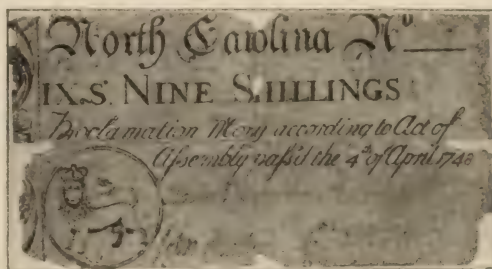 North Carolina Nº
IX.S NINE SHILLINGS
Proclamation Mony according to Act of
Assembly pass'd the 4th of April 1748